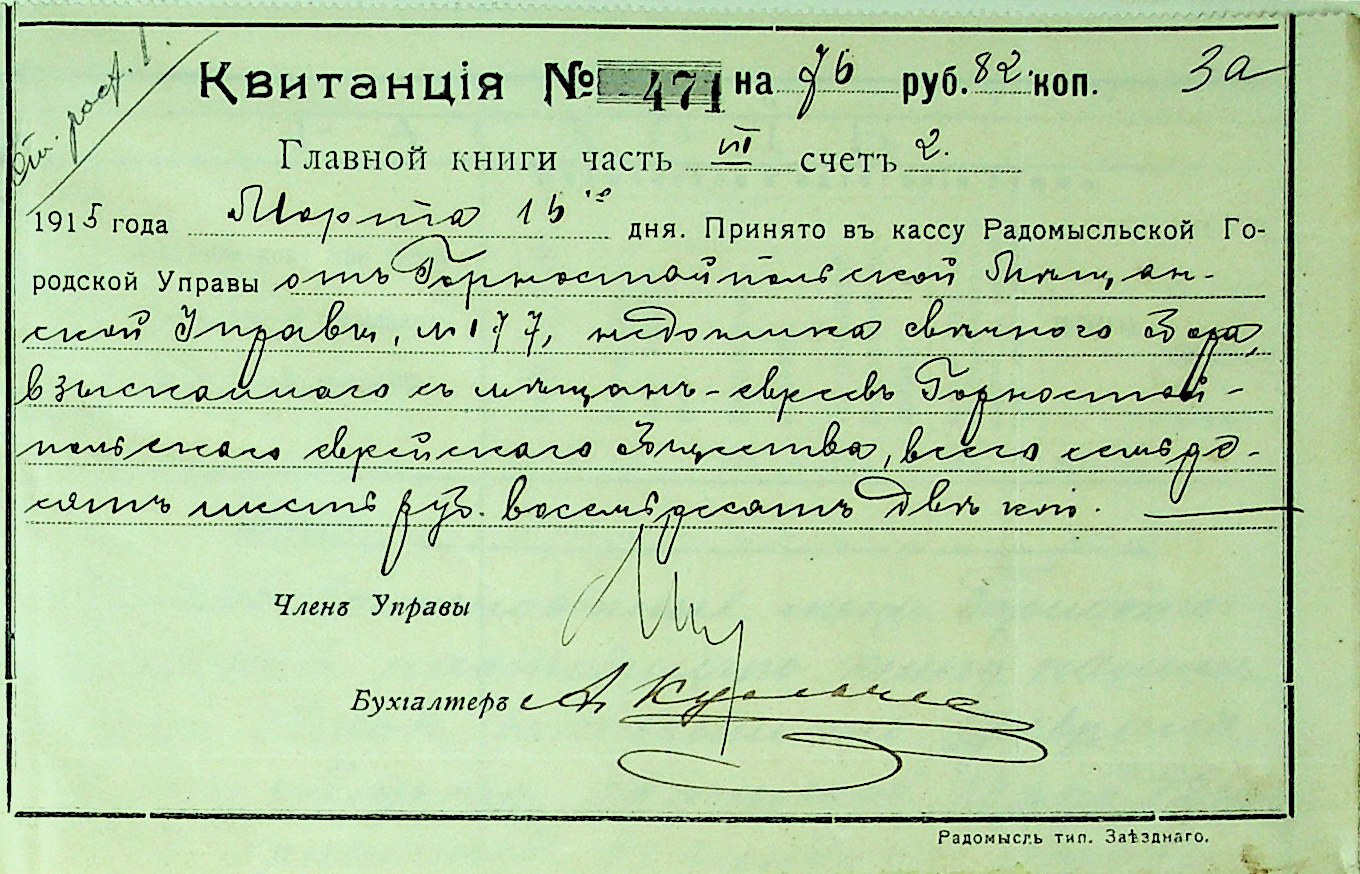 От. рост. 1.
Квитанція № 471 на 76 руб. 82 коп. За
Главной книги часть III счетъ 2.
1915 года Марта 16 го дня. Принято въ кассу Радомысльской Го-
родской Управы отъ Горностайпольской Мѣщан-
ской Управы, № 177, недоимка свѣчного сбора,
взысканнаго съ мѣщанъ-евреевъ Горностай-
польскаго еврейскаго общества, всего семьде-
сятъ шесть руб. восемьдесятъ двѣ коп.
Членъ Управы
Бухгалтеръ А.
Радомысль тип. Заѣзднаго.